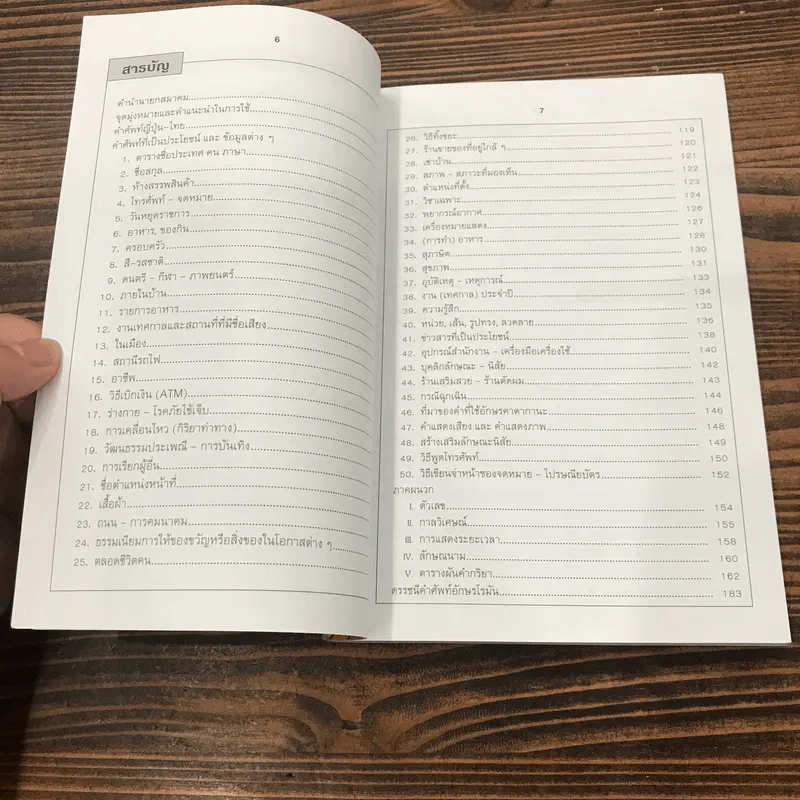 6
สารบัญ
คำนำนายกสมาคม
จุดมุ่งหมายและคำแนะนำในการใช้
คำศัพท์ญี่ปุ่น-ไทย
คำศัพท์ที่เป็นประโยชน์ และ ข้อมูลต่าง ๆ
1. ตารางชื่อประเทศ คน ภาษา
2. ชื่อสกุล
3. ห้างสรรพสินค้า
4. โทรศัพท์ - จดหมาย
5. วันหยุดราชการ
6. อาหาร, ของกิน
7. ครอบครัว
8. สี-รสชาติ
9. ดนตรี - กีฬา - ภาพยนตร์
10. ภายในบ้าน
11. รายการอาหาร
12. งานเทศกาลและสถานที่ที่มีชื่อเสียง
13. ในเมือง
14. สถานีรถไฟ
15. อาชีพ
16. วิธีเบิกเงิน (ATM)
17. ร่างกาย - โรคภัยไข้เจ็บ
18. การเคลื่อนไหว (กิริยาท่าทาง)
19. วัฒนธรรมประเพณี - การบันเทิง
20. การเรียกผู้อื่น
21. ชื่อตำแหน่งหน้าที่
22. เสื้อผ้า
23. ถนน - การคมนาคม
24. ธรรมเนียมการให้ของขวัญหรือสิ่งของในโอกาสต่าง ๆ
25. ตลอดชีวิตคน
7
26. วิธีทิ้งขยะ 119
27. ร้านขายของที่อยู่ใกล้ ๆ 120
28. เช่าบ้าน 121
29. สภาพ - สภาวะที่มองเห็น 122
30. ตำแหน่งที่ตั้ง 123
31. วิชาเฉพาะ 124
32. พยากรณ์อากาศ 126
33. เครื่องหมายแสดง 127
34. (การทำ) อาหาร 128
35. สุภาษิต 130
36. สุขภาพ 131
37. อุบัติเหตุ - เหตุการณ์ 133
38. งาน (เทศกาล) ประจำปี 134
39. ความรู้สึก 135
40. หน่วย, เส้น, รูปทรง, ลวดลาย 136
41. ข่าวสารที่เป็นประโยชน์ 138
42. อุปกรณ์สำนักงาน - เครื่องมือเครื่องใช้ 140
43. บุคลิกลักษณะ - นิสัย 142
44. ร้านเสริมสวย - ร้านตัดผม 143
45. กรณีฉุกเฉิน 144
46. ที่มาของคำที่ใช้อักษรคาตากานะ 146
47. คำแสดงเสียง และ คำแสดงภาพ 148
48. สร้างเสริมลักษณะนิสัย 149
49. วิธีพูดโทรศัพท์ 150
50. วิธีเขียนจ่าหน้าซองจดหมาย - ไปรษณียบัตร 152
ภาคผนวก
I. ตัวเลข 154
II. กาลวิเศษณ์ 155
III. การแสดงระยะเวลา 158
IV. ลักษณนาม 160
V. ตารางผันคำกริยา 162
ดรรชนีคำศัพท์อักษรโรมัน 183